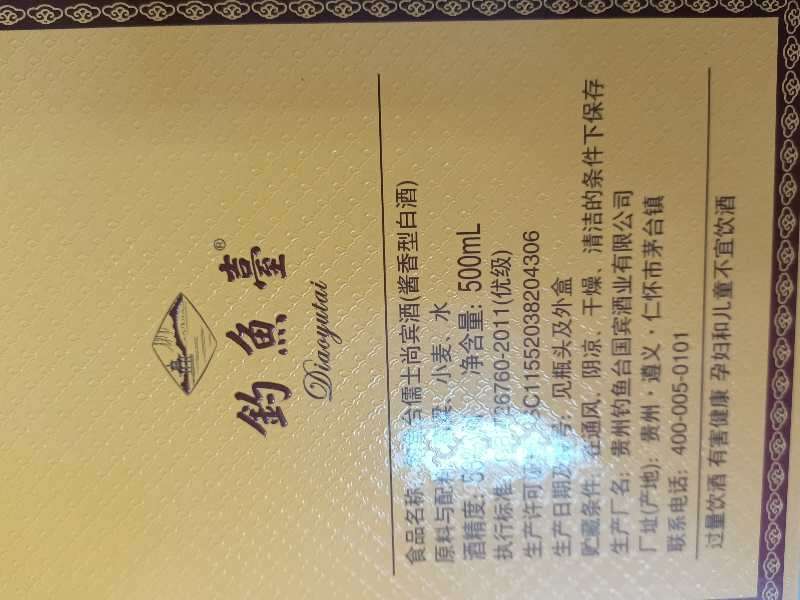 釣魚臺®
Diaoyutai
食品名称 台儒士尚宾酒(酱香型白酒)
原料与配料 小麦、水
酒精度: 净含量: 500mL
执行标准 26760-2011(优级)
生产许可 SC11552038204306
生产日期及 号: 见瓶头及外盒
贮藏条件: 在通风、阴凉、干燥、清洁的条件下保存
生产厂名: 贵州钓鱼台国宾酒业有限公司
厂址(产地): 贵州·遵义·仁怀市茅台镇
联系电话: 400-005-0101
过量饮酒 有害健康 孕妇和儿童不宜饮酒